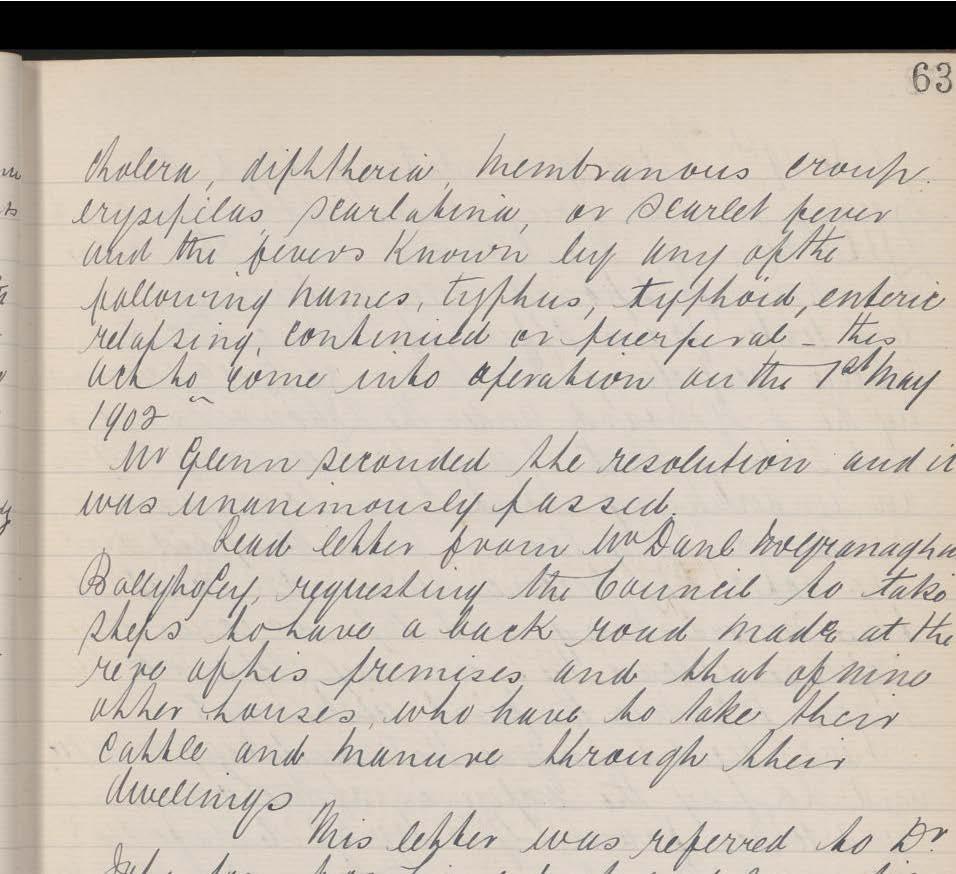 63
cholera, diphtheria, membranous croup.
erysipilas, scarlatina, or scarlet fever
and the fevers known by any of the
following names, typhus, typhoid, enteric
relapsing, continued or puerperal - this
act to come into operation on the 1st May
1902"
Mr Glenn seconded the resolution and it
was unanimously passed.
Read letter from Mr Danl
Ballybofey, requesting the Council to take
steps to have a back road made at the
rere of his premises and that of nine
other houses, who have to take their
cattle and manure through their
dwellings
This letter was referred to Dr